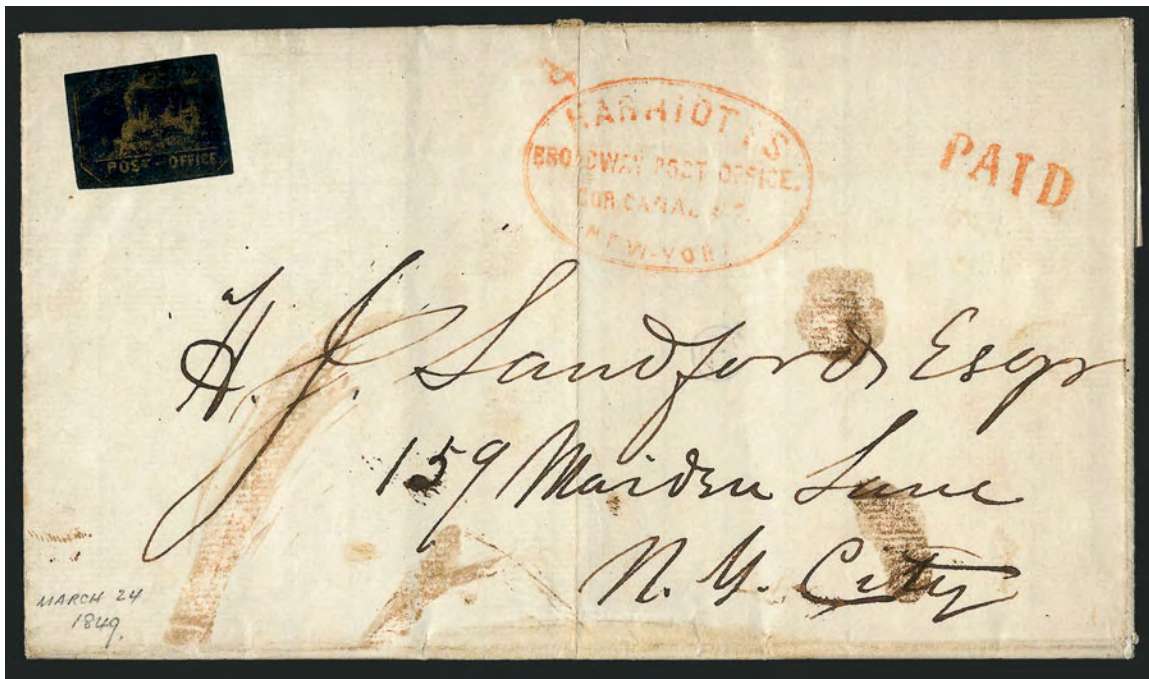 POST-OFFICE
HARRIOTT'S
BROADWAY POST OFFICE.
COR. CANAL ST.
NEW-YORK
PAID
H. J. Sandford Esqr
159 Maiden Lane
N. Y. City
MARCH 24
1849.